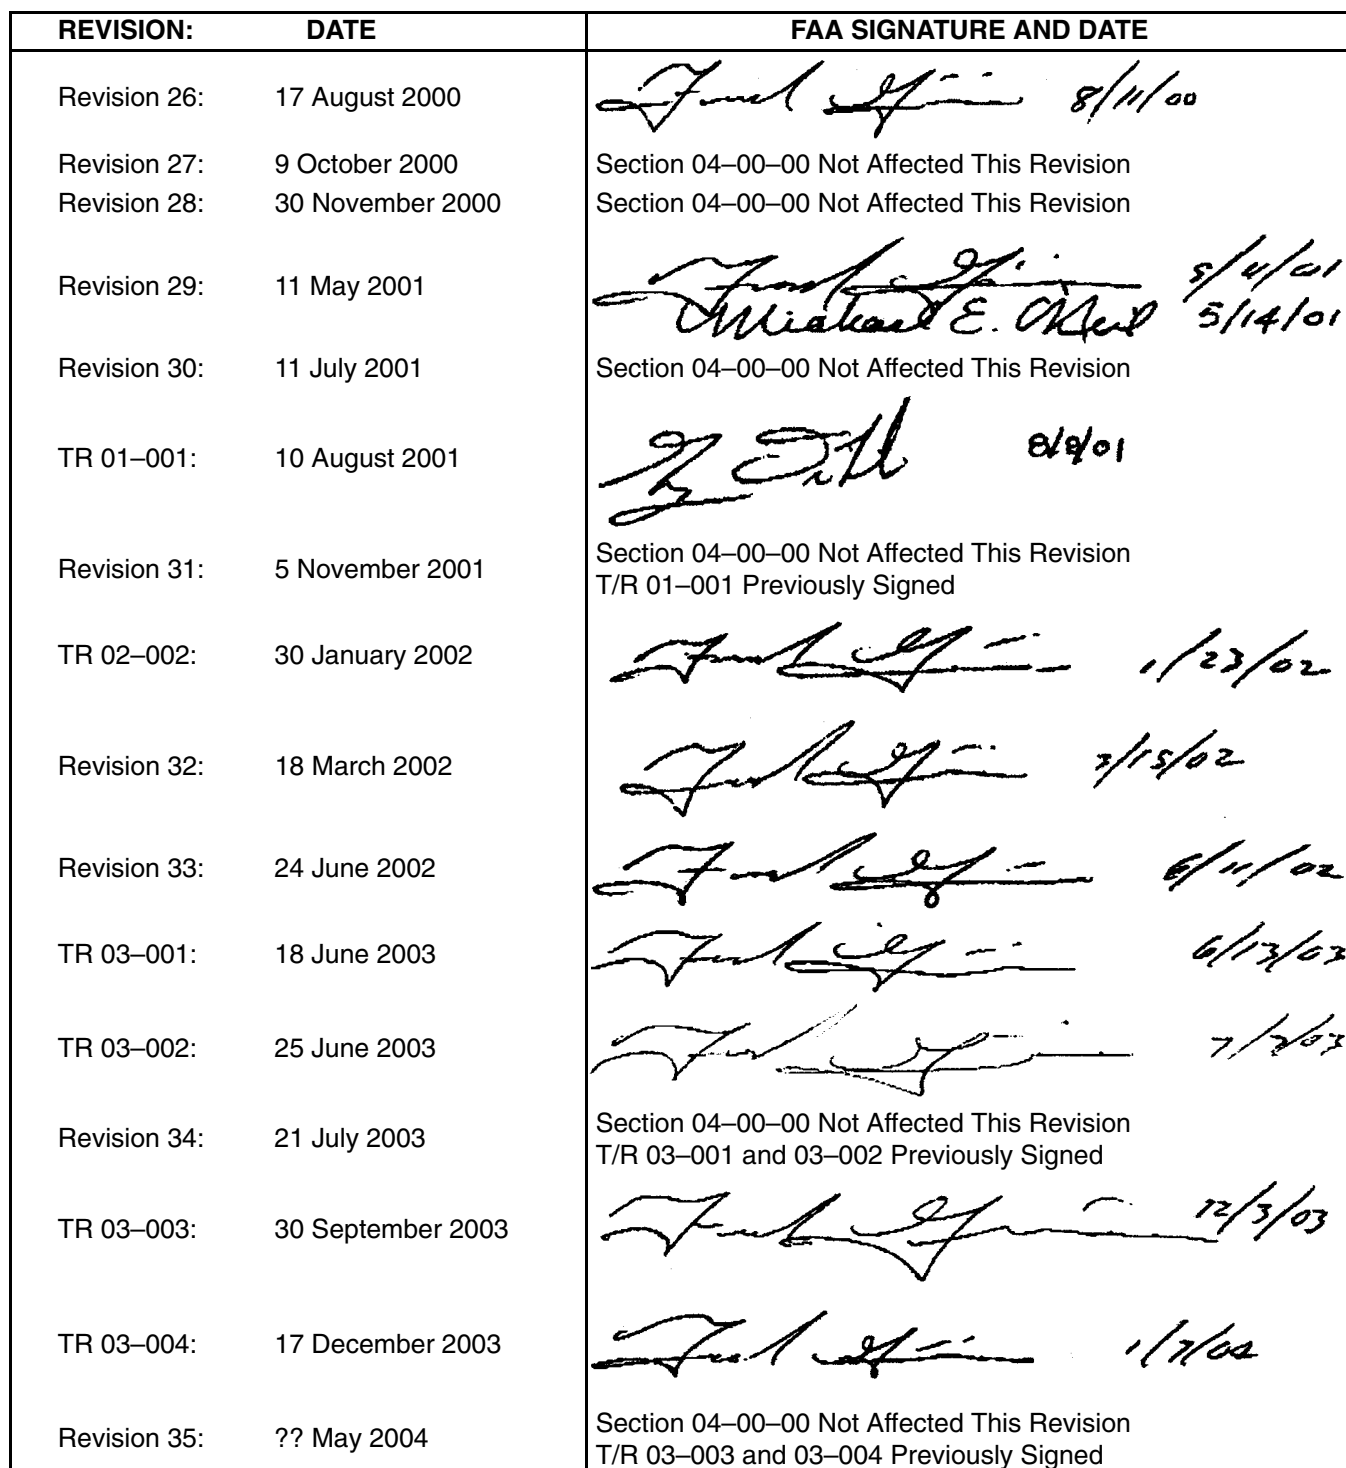 REVISION: DATE FAA SIGNATURE AND DATE
Revision 26: 17 August 2000 8/11/00
Revision 27: 9 October 2000 Section 04–00–00 Not Affected This Revision
Revision 28: 30 November 2000 Section 04–00–00 Not Affected This Revision
Revision 29: 11 May 2001 5/4/01
Michael E. O'Neil 5/14/01
Revision 30: 11 July 2001 Section 04–00–00 Not Affected This Revision
TR 01–001: 10 August 2001 8/8/01
Revision 31: 5 November 2001 Section 04–00–00 Not Affected This Revision
T/R 01–001 Previously Signed
TR 02–002: 30 January 2002 1/23/02
Revision 32: 18 March 2002 3/15/02
Revision 33: 24 June 2002 6/11/02
TR 03–001: 18 June 2003 6/13/03
TR 03–002: 25 June 2003 7/2/03
Revision 34: 21 July 2003 Section 04–00–00 Not Affected This Revision
T/R 03–001 and 03–002 Previously Signed
TR 03–003: 30 September 2003 12/3/03
TR 03–004: 17 December 2003 1/7/04
Revision 35: ?? May 2004 Section 04–00–00 Not Affected This Revision
T/R 03–003 and 03–004 Previously Signed